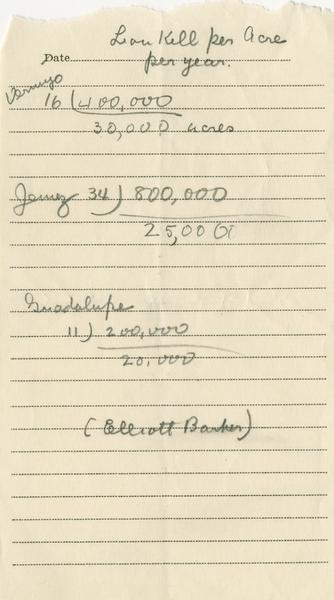 Lion Kill per Acre
Date
per year.
Vermejo
16 ) 400,000
30,000 acres
Jemez 34 ) 800,000
25,000
Guadalupe
11 ) 200,000
20,000
(Elliott Barker)